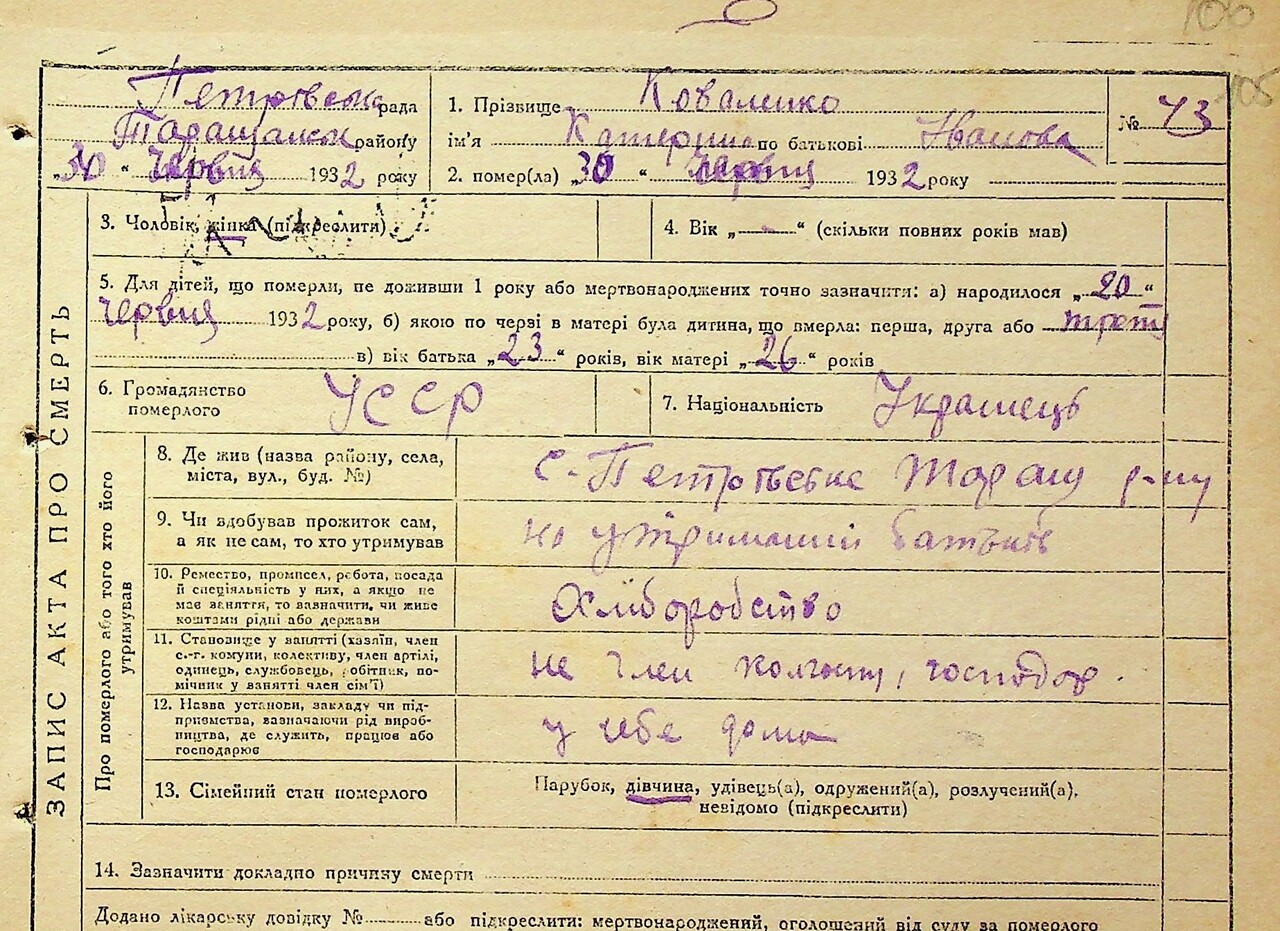 106
105
Петрівська рада
Таращанськ району
„30“ Червня 1932 року
1. Прізвище Коваленко
ім'я Катерина по батькові Иванова
2. помер(ла) „30“ Червня 1932 року
№ 73
3. Чоловік, жінка (підкреслити)
4. Вік „—“ (скільки повних років мав)
5. Для дітей, що померли, не доживши 1 року або мертвонароджених точно зазначити: а) народилося „20“
червня 1932 року, б) якою по черзі в матері була дитина, що вмерла: перша, друга або третя
в) вік батька „23“ років, вік матері „26“ років
6. Громадянство
померлого
УССР
7. Національність Українець
ЗАПИС АКТА ПРО СМЕРТЬ
Про померлого або того хто його
утримував
8. Де жив (назва району, села,
міста, вул., буд. №)
с. Петрівське Тараш р-ну
9. Чи здобував прожиток сам,
а як не сам, то хто утримував
на утриманні батьків
10. Ремество, промисел, робота, посада
й спеціяльність у них, а якщо не
має заняття, то зазначити, чи живе
коштами рідні або держави
Хліборобство
11. Становище у занятті (хазяїн, член
с.-г. комуни, колективу, член артілі,
одинець, службовець, робітник, по-
мічник у занятті член сім'ї)
не член колгоспу, господар.
12. Назва установи, закладу чи під-
приємства, зазначаючи рід вироб-
ництва, де служить, працює або
господарює
у себе дома
13. Сімейний стан померлого
Парубок, дівчина, удівець(а), одружений(а), розлучений(а),
невідомо (підкреслити)
14. Зазначити докладно причину смерти
Додано лікарську довідку № або підкреслити: мертвонароджений, оголошений від суду за померлого